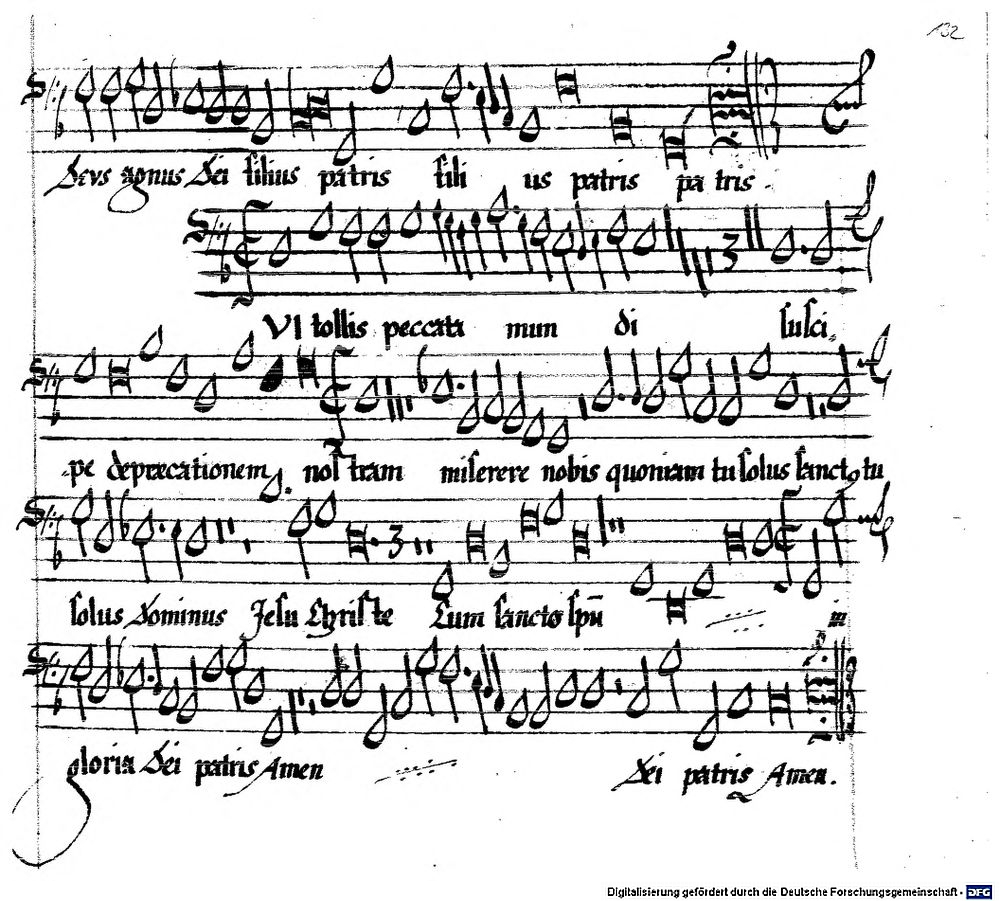 132
Deus agnus Dei filius patris fili us patris pa tris.
VI tollis peccata mun di susci-
-pe deprecationem nos tram miserere nobis quoniam tu solus sanct9 tu
solus Dominus Jesu Christe Cum sancto spū in
gloria Dei patris Amen Dei patris Amen.
Digitalisierung gefördert durch die Deutsche Forschungsgemeinschaft - DFG